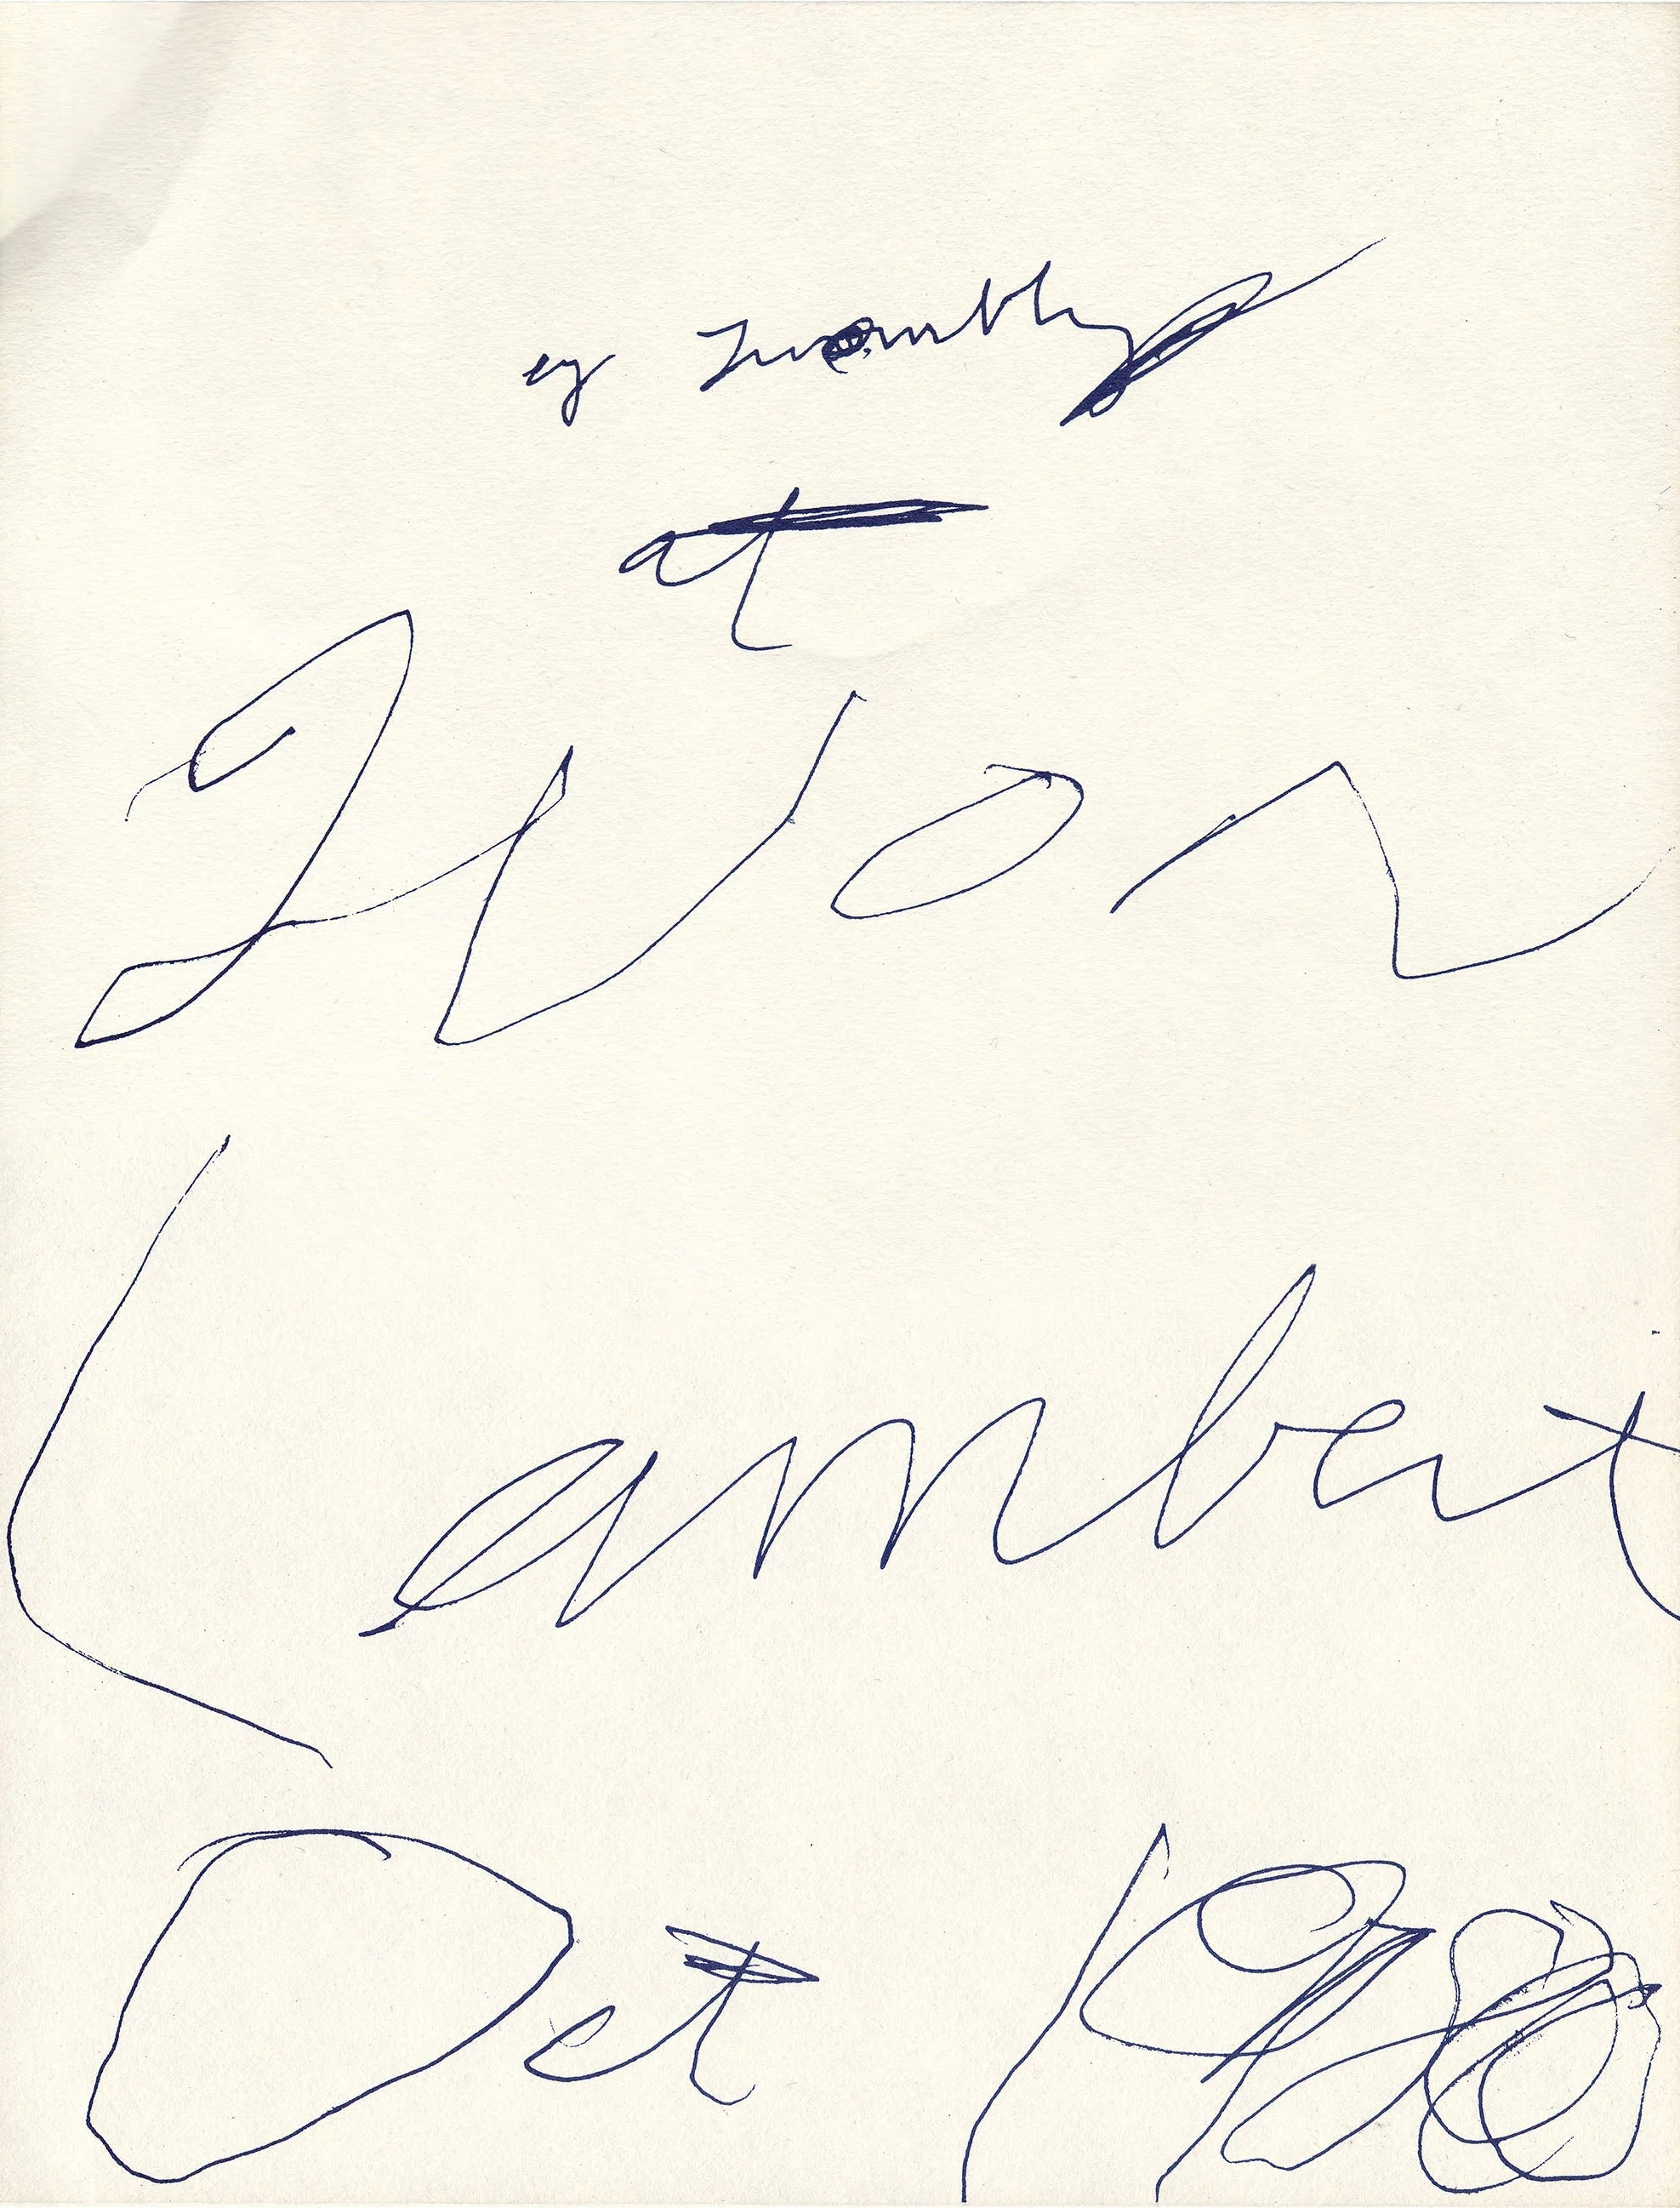 cy Twombly
at
Yvon
Lambert
Oct